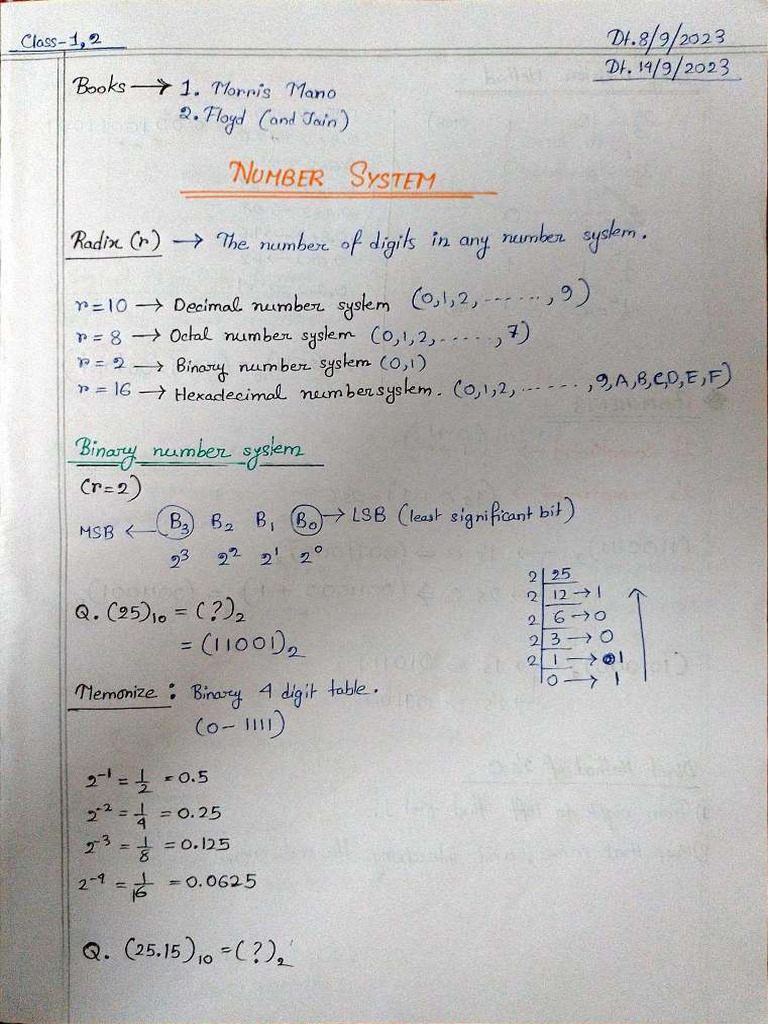 Class-1,2
Dt. 8/9/2023
Dt. 14/9/2023
Books → 1. Morris Mano
2. Floyd (and Jain)
NUMBER SYSTEM
Radix (r) → The number of digits in any number system.
r=10 → Decimal number system (0,1,2,------,9)
r=8 → Octal number system (0,1,2,-----,7)
r=2 → Binary number system (0,1)
r=16 → Hexadecimal number system. (0,1,2,------,9,A,B,C,D,E,F)
Binary number system
(r=2)
MSB ← B₃ B₂ B₁ B₀ → LSB (least significant bit)
2³ 2² 2¹ 2⁰
Q. (25)₁₀ = (?)₂
= (11001)₂
2|25
2|12→1
2|6→0
2|3→0
2|1→1
0→1
Memorize : Binary 4 digit table.
(0-1111)
2⁻¹ = 1/2 = 0.5
2⁻² = 1/4 = 0.25
2⁻³ = 1/8 = 0.125
2⁻⁴ = 1/16 = 0.0625
Q. (25.15)₁₀ = (?)₂